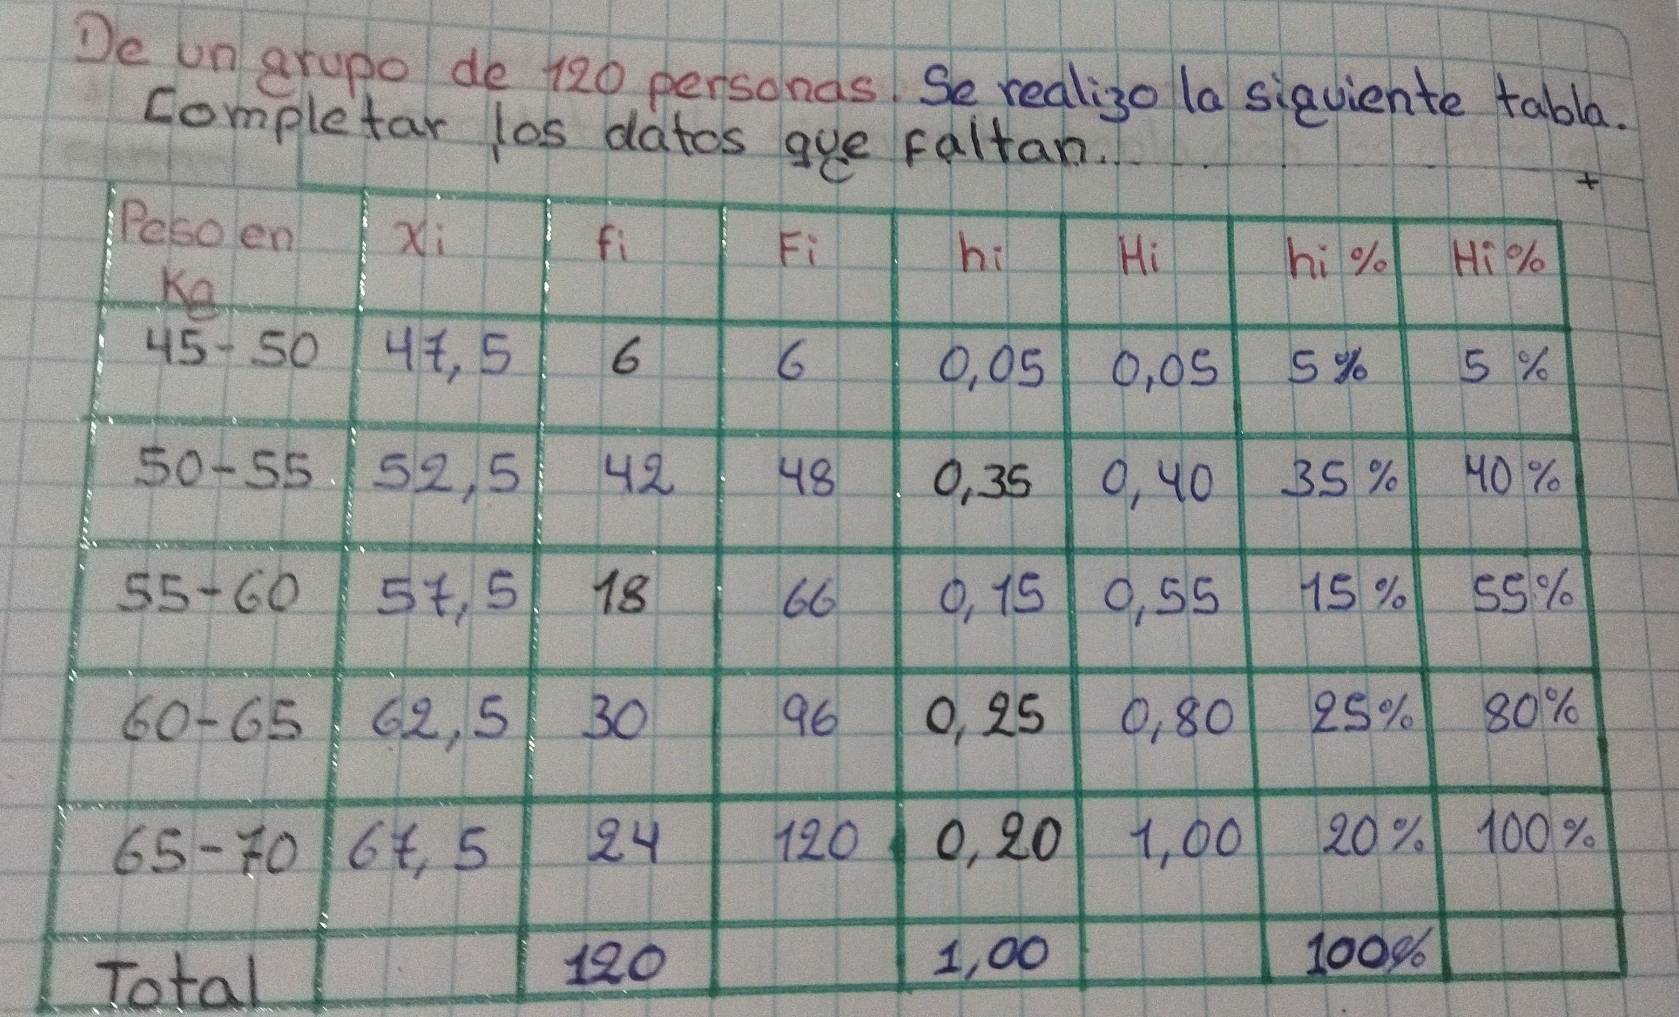 De un grupo de 120 personas. Se realizo la siguiente tabla.
Completar los datos que Faltan...
Peso en Kg Xi fi Fi hi Hi hi % Hi %
45-50 47,5 6 6 0,05 0,05 5% 5%
50-55 52,5 42 48 0,35 0,40 35% 40%
55-60 57,5 18 66 0,15 0,55 15% 55%
60-65 62,5 30 96 0,25 0,80 25% 80%
65-70 67,5 24 120 0,20 1,00 20% 100%
Total 120 1,00 100%